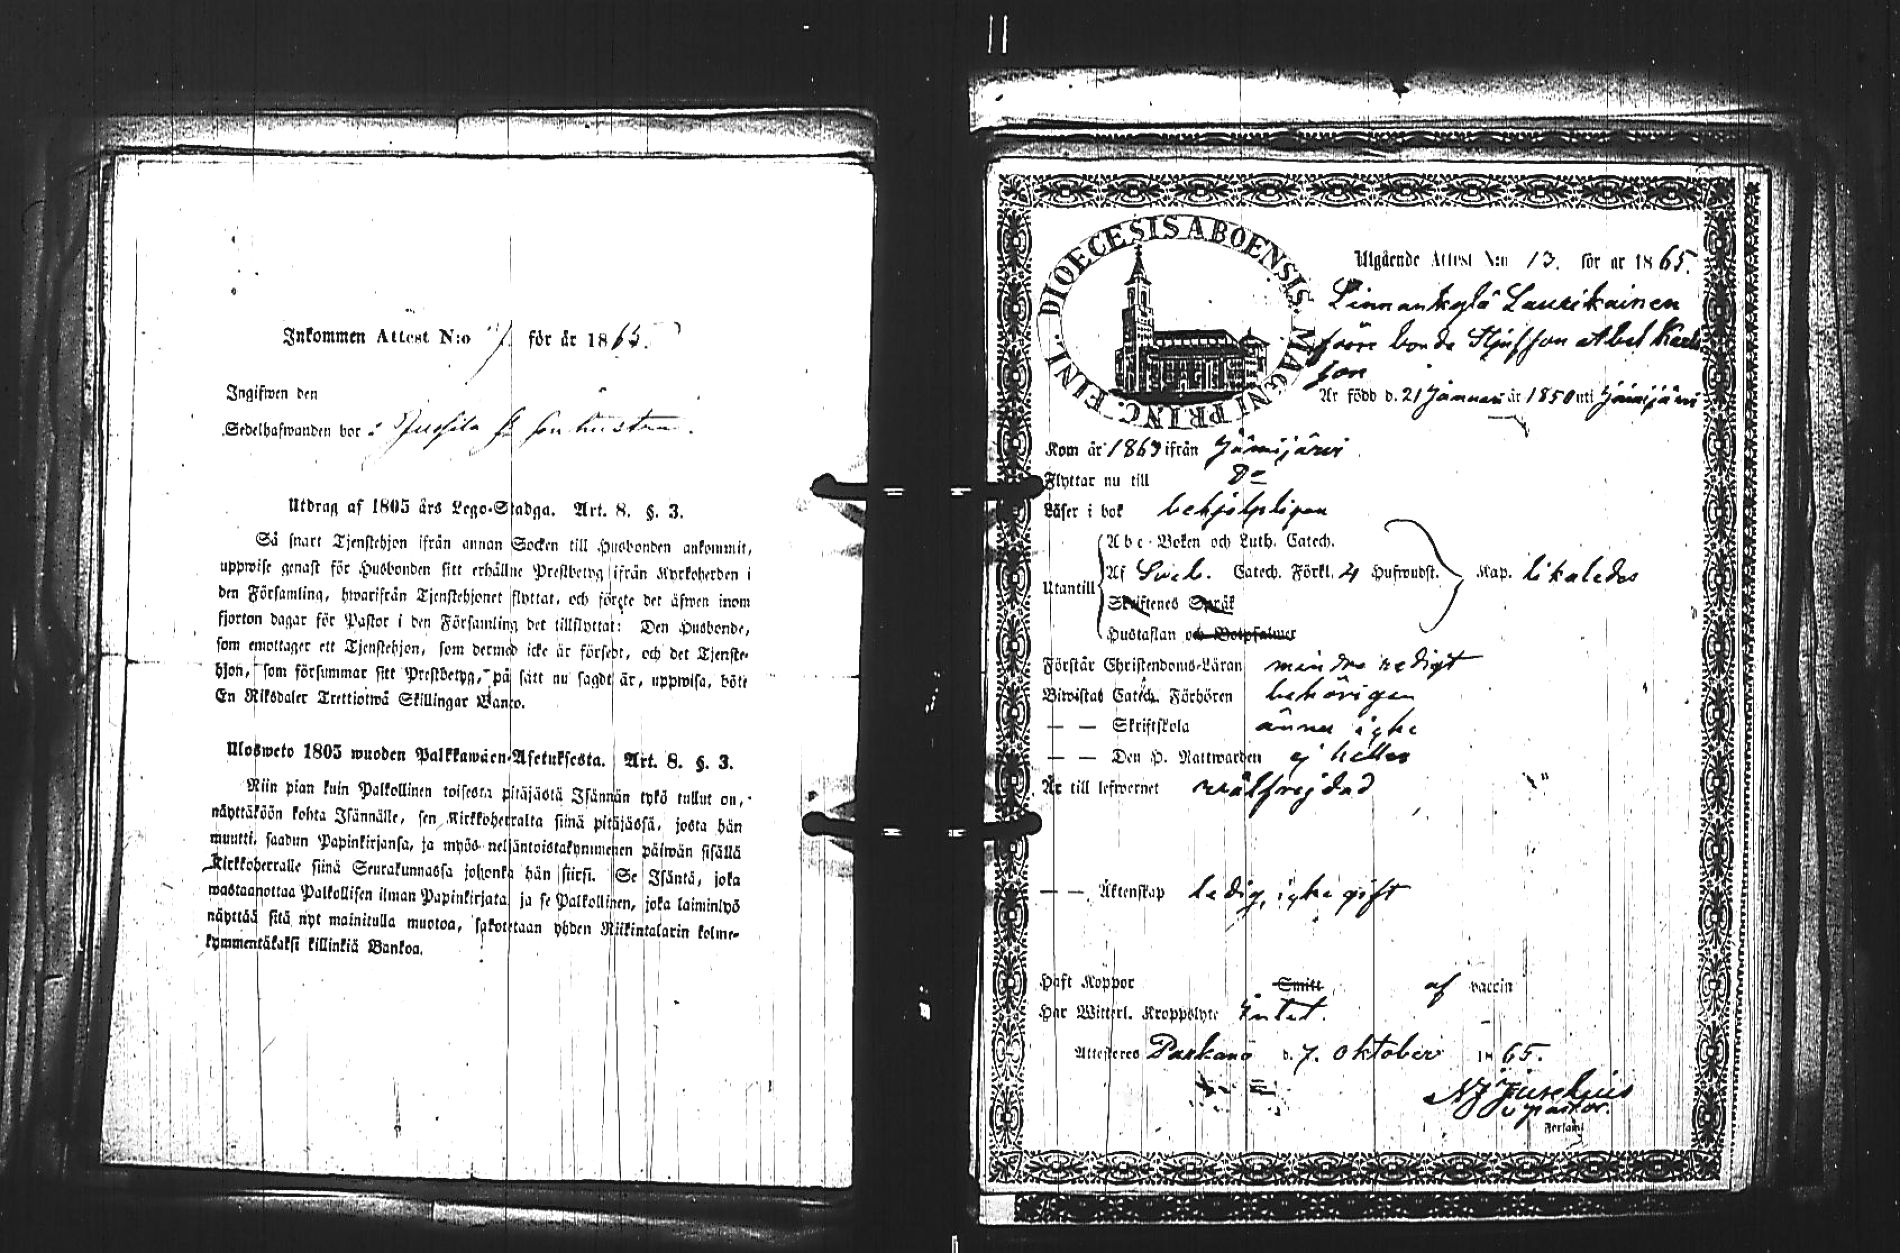 Inkommen Attest N:o 7. för år 1865.
Ingifwen den
Sedelhafwanden bor i
Utdrag af 1805 års Lego-Stadga. Art. 8. §. 3.
Så snart Tjenstehjon ifrån annan Socken till Husbonden ankommit,
uppwise genast för Husbonden sitt erhållne Prestbetyg ifrån Kyrkoherden i
den Församling, hwarifrån Tjenstehjonet flyttat, och förete det äfwen inom
fjorton dagar för Pastor i den Församling det tillflyttat: Den Husbonde,
som emottager ett Tjenstehjon, som dermed icke är försedt, och det Tjenste-
hjon, som försummar sitt Prestbetyg, på sätt nu sagdt är, uppwisa, böte
En Riksdaler Trettiotwå Skillingar Banco.
Ulosweto 1805 wuoden Palkkawäen-Asetuksesta. Art. 8. §. 3.
Niin pian kuin Palkollinen toisesta pitäjästä Isännän tykö tullut on,
näyttäköön kohta Isännälle, sen Kirkkoherralta siinä pitäjässä, josta hän
muutti, saadun Papinkirjansa, ja myös neljäntoistakymmenen päiwän sisällä
Kirkkoherralle siinä Seurakunnassa johonka hän siirsi. Se Isäntä, joka
wastaanottaa Palkollisen ilman Papinkirjata ja se Palkollinen, joka laiminlyö
näyttää sitä nyt mainitulla muotoa, sakotetaan yhden Riikintalarin kolme-
kymmentäkaksi killinkiä Bankoa.
DIOECESIS ABOENSIS. MAGNI PRINC. FINL.
Utgående Attest N:o 13. för år 1865.
Linnankylä Laurikainen
förre bonde Stjufson Abel Karls
son
Är född d. 21 Januari år 1850 uti Jämijärvi
Kom år 1863 ifrån Jämijärvi
Flyttar nu till Do
Läser i bok behjelpligen
Utantill
Abc-Boken och Luth. Catech.
Af Sveb. Catech. Förkl. 4 Hufwudst. Kap. likaledes
Skriftenes Språk
Hustaflan och Botpsalmer
Förstår Christendoms-Läran mindre redigt
Biwistat Catech. Förhören behörigen
— — Skriftskola ännu icke
— — Den H. Nattwarden ej heller
Är till lefwernet wälfrejdad
— — Äktenskap ledig, icke gift
Haft Koppor Smitt af vaccin
Har Witterl. Kroppslyte Intet.
Attesteras Parkano d. 7. Oktober 1865.